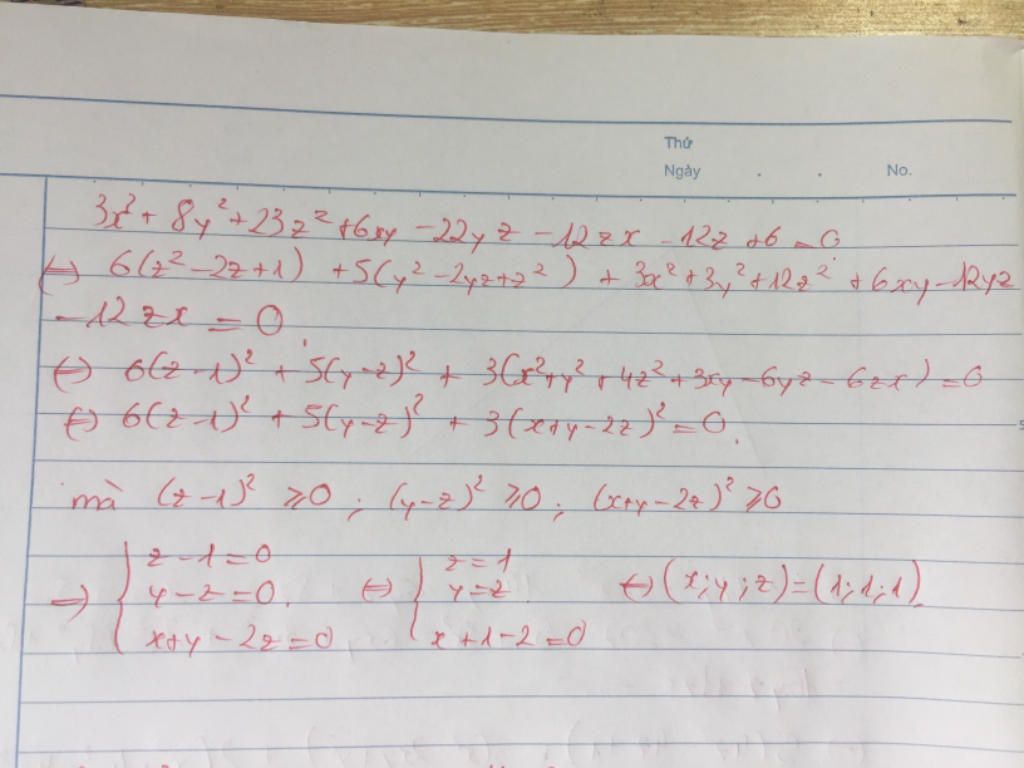 Thứ
Ngày . . No.
3x² + 8y² + 23z² + 6xy - 22yz - 12zx - 12z + 6 = 0
(=) 6(z² - 2z + 1) + 5(y² - 2yz + z²) + 3x² + 3y² + 12z² + 6xy - 12yz
- 12zx = 0.
(=) 6(z - 1)² + 5(y - z)² + 3(x² + y² + 4z² + 3xy - 6yz - 6zx) = 0
(=) 6(z - 1)² + 5(y - z)² + 3(x + y - 2z)² = 0.
mà (z - 1)² ≥ 0 ; (y - z)² ≥ 0 ; (x + y - 2z)² ≥ 0
z - 1 = 0 z = 1
=> { y - z = 0. (=) { y = z (=) (x; y; z) = (1; 1; 1).
x + y - 2z = 0 x + 1 - 2 = 0